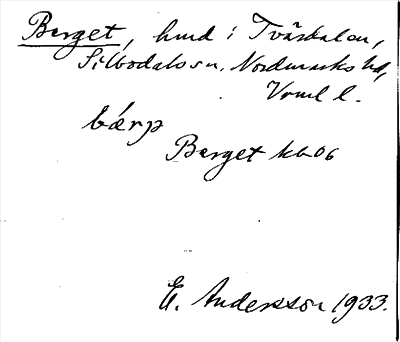 Berget, hmd i Tvärdalen,
Silbodals sn, Nordmarks hd,
Vrml l.
bǽrp
Berget kb 06
E. Andersson 1933.